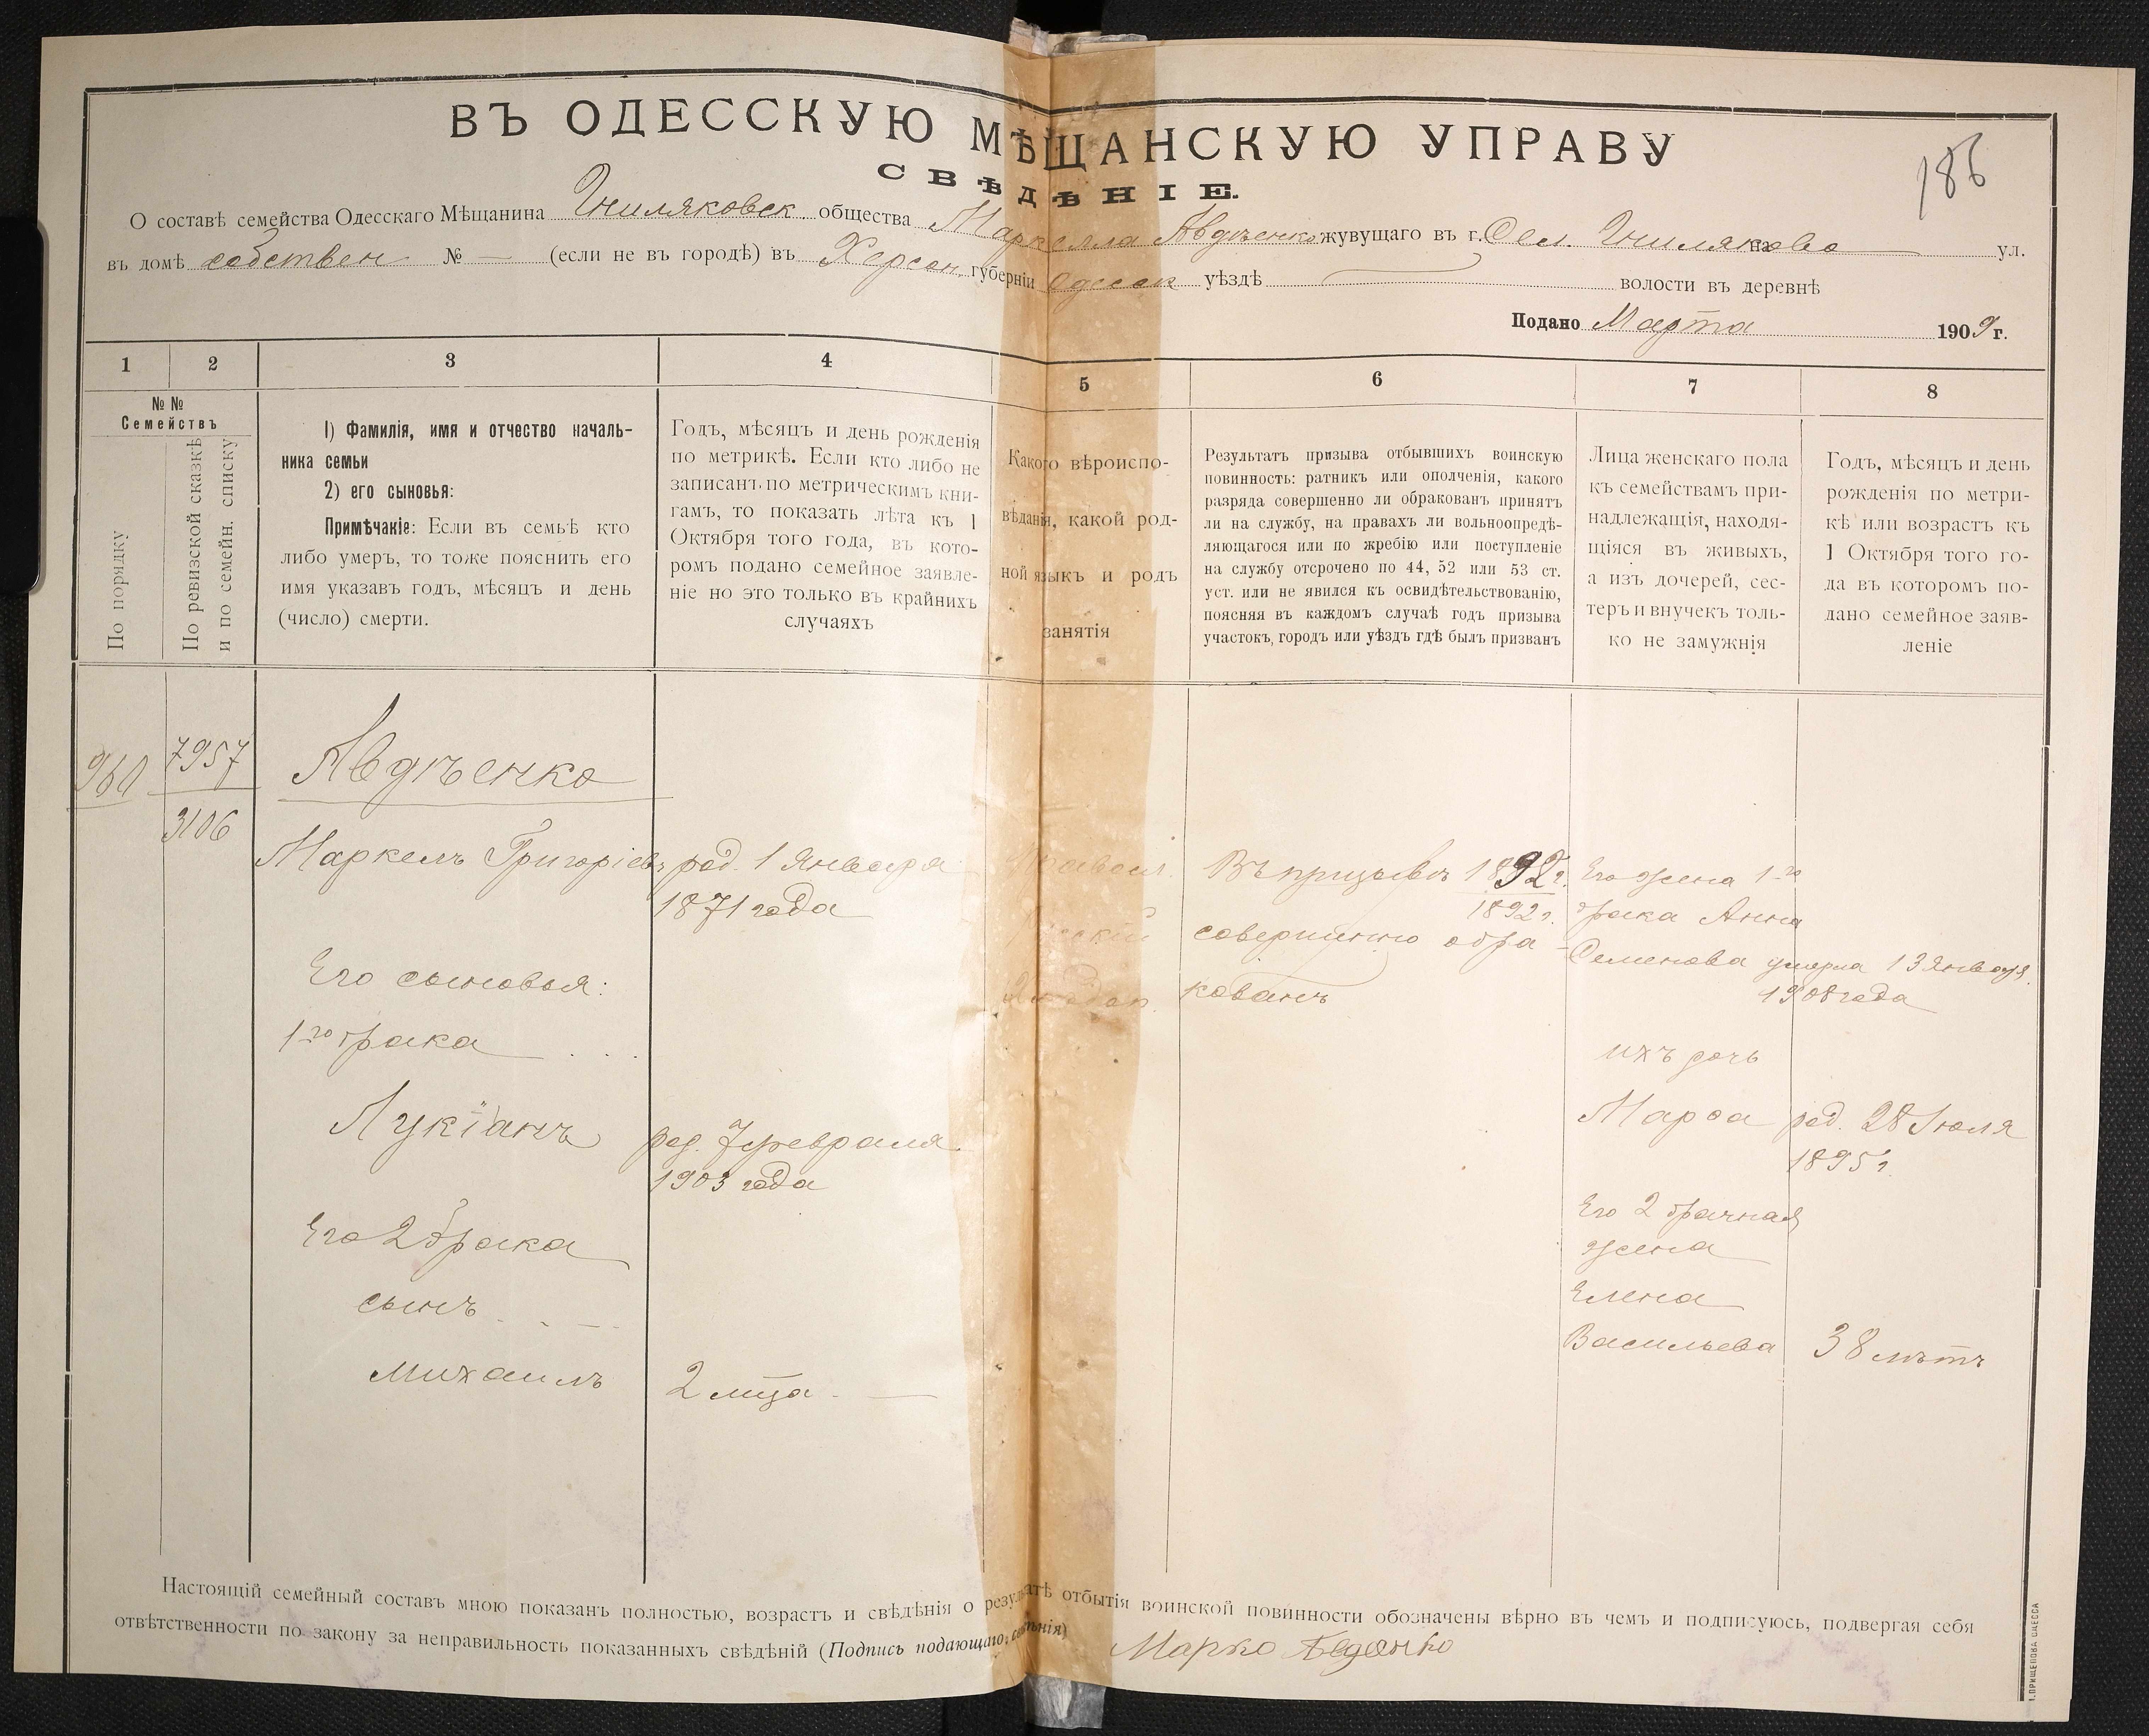 ВЪ ОДЕССКУЮ МѢЩАНСКУЮ УПРАВУ
186
СВѢДѢНІЕ.
О составѣ семейства Одесскаго Мѣщанина Гниляковск. общества Маркелла Авдѣенко жувущаго въ г. Сел. Гниляково на ул.
въ домѣ собствен № — (если не въ городѣ) въ Херсон. губерніи Одесск уѣздѣ волости въ деревнѣ
Подано Марта 1909 г.
1 2 3 4 5 6 7 8
№№
Семействъ
По порядку
По ревизской сказкѣ
и по семейн. списку
1) Фамилія, имя и отчество началь-
ника семьи
2) его сыновья:
Примѣчакіе: Если въ семьѣ кто
либо умеръ, то тоже пояснить его
имя указавъ годъ, мѣсяцъ и день
(число) смерти.
Годъ, мѣсяцъ и день рожденія
по метрикѣ. Если кто либо не
записанъ по метрическимъ кни-
гамъ, то показать лѣта къ 1
Октября того года, въ кото-
ромъ подано семейное заявле-
ніе но это только въ крайнихъ
случаяхъ
Какого вѣроиспо-
вѣданія, какой род-
ной языкъ и родъ
занятія
Результатъ призыва отбывшихъ воинскую
повинность: ратникъ или ополченія, какого
разряда совершенно ли обракованъ принятъ
ли на службу, на правахъ ли вольноопредѣ-
ляющагося или по жребію или поступленіе
на службу отсрочено по 44, 52 или 53 ст.
уст. или не явился къ освидѣтельствованію,
поясняя въ каждомъ случаѣ годъ призыва
участокъ, городъ или уѣздъ гдѣ былъ призванъ
Лица женскаго пола
къ семействамъ при-
надлежащія, находя-
щіяся въ живыхъ,
а изъ дочерей, сес-
теръ и внучекъ толь-
ко не замужнія
Годъ, мѣсяцъ и день
рожденія по метри-
кѣ или возрастъ къ
1 Октября того го-
да въ которомъ по-
дано семейное заяв-
леніе
960
7957
3106
Авдѣенко
Маркелъ Григоріевъ
род. 1 Января
1871 года
Правосл.
Русскій
Въ призывъ 1892 г.
1892 г.
совершенно обра-
кованъ
Его жена 1го
брака Анна
Семенова умерла 13 Января
1908 года
Его сыновья:
1го брака
Лукіанъ
род. 7 февраля
1903 года
ихъ дочь
Марѳа род. 28 Іюля
1895 г.
Его 2 брака
сынъ
Михаилъ 2 мца.
Его 2 брачная
жена
Елена
Васильева 38 лѣтъ
Настоящій семейный составъ мною показанъ полностью, возрастъ и свѣдѣнія о результатѣ отбытія воинской повинности обозначены вѣрно въ чемъ и подписуюсь, подвергая себя
отвѣтственности по закону за неправильность показанныхъ свѣдѣній (Подпись подающаго свѣдѣнія)
Марко Авдѣнко
.ПРИЩЕПОВА ОДЕССА